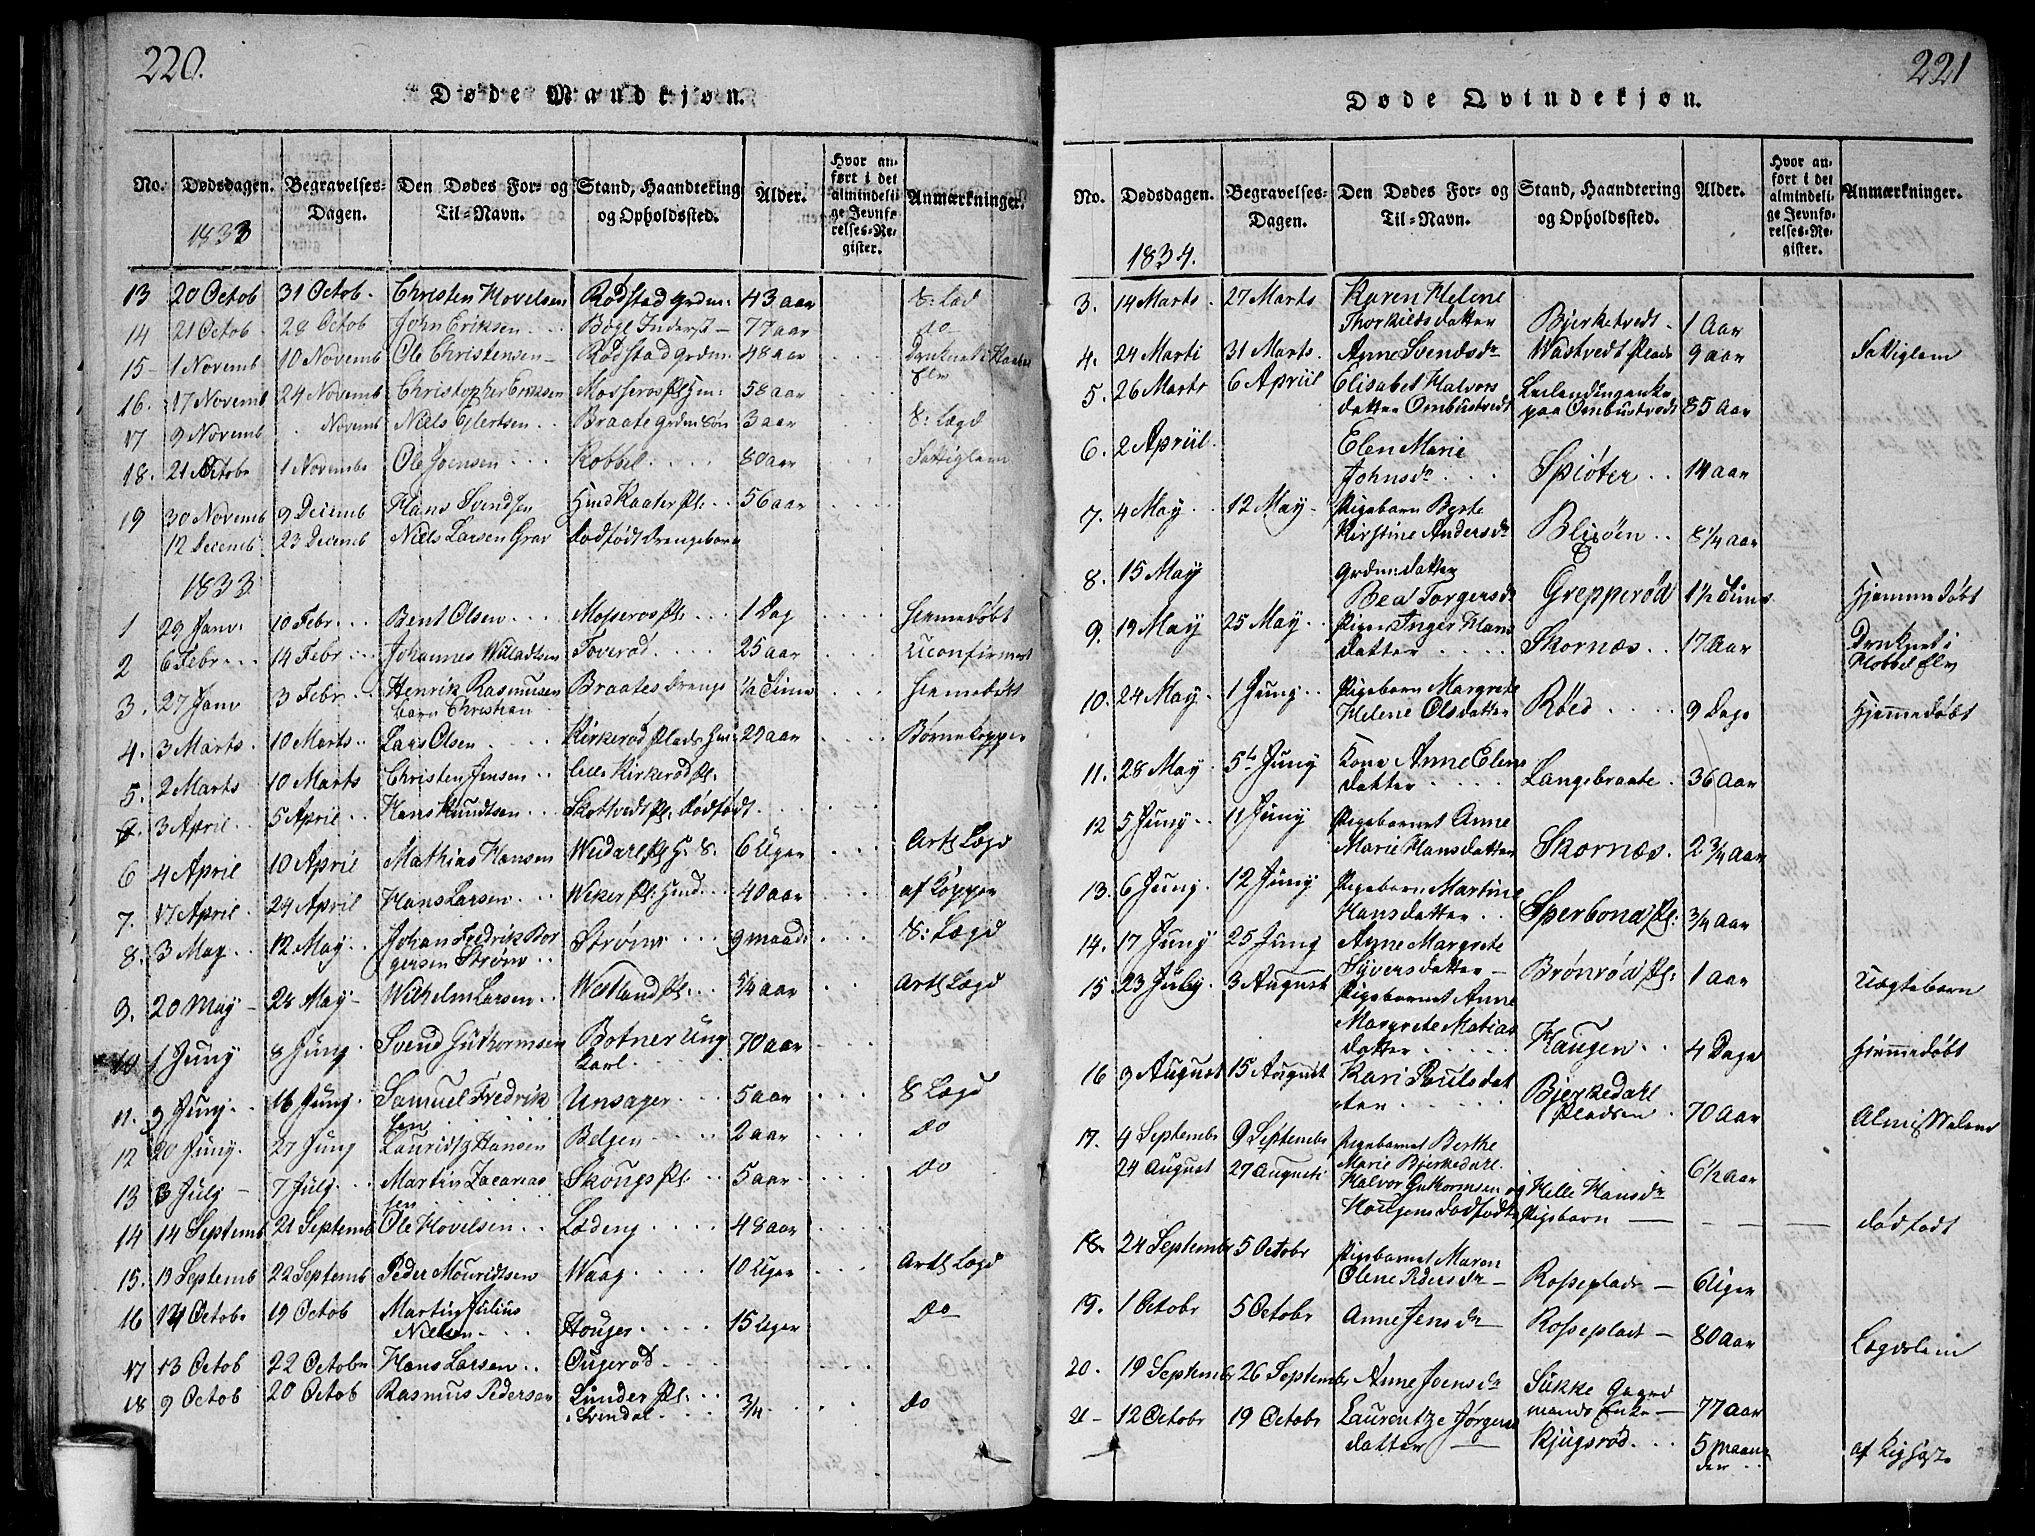 220.
Døde Mandkjøn.
No. Dødsdagen. Begravelses-Dagen. Den Dødes For- og Til-Navn. Stand, Haandtering og Opholdssted. Alder. Hvor anført i det almindelige Jevnførelses-Register. Anmærkninger.
1833
13 20 Octob 31 Octob. Christen Hovelsen Rødstad grdm. 43 aar 8: Læd
14 21 Octob 28 Octob John Eriksen Bøgl Inderst 77 aar do
15 1 Novemb 10 Novemb Ole Christensen Rødstad grdm. 48 aar Druknet i
Elv
16. 17 Novemb 24 Novemb Christopher Eriksen Mosseros Pl: 58 aar
17 9 Novemb Novemb Niels Ejlertsen Braate grdm Søn 3 aar 8: Lægd
18. 21 Octobr 1 Novembr Ole Joensen Kobbel 80 aar Fattiglem
19 30 Novemb 9 Decemb Hans Svendsen Huusl: Pl: 56 aar
12 Decemb 23 Decemb Niels Larsen Grav dødfødt drengebarn
1833
1 29 Janv. 10 Febr. Bent Olsen Mosseros Pl. 1 Dag Hiemedøbt
2 6 Febr. 14 Febr Johannes Willadtsen Toverød 25 aar Uconfirmert
3. 27 Janv 3 Febr Henrik Rasmusen Braates Drenge ½ Time Hiemedøbt
barn Christian
4. 3 Marts 10 Marts Lars Olsen Kirkerød Plads 29 aar Børnekopper
5. 2 Marts 10 Marts Christen Jensen Lille Kirkerød Pl.
3 April 5 April Hans Knudtsen Skottvedt Pl. dødfødt
6 4 April 10 April Mathias Hansen Wedarl Pl: H. S. 6 Uger Artl Lægd
7. 17 April 24 April Hans Larsen Weker Pl: 40 aar af Kopper
8. 3 May 12 May Johan Fredrik Bor Strøm 9 maad: 8: Lægd
gersen Strøm
9. 20 May 28 May Wilhelm Larsen Westland Pl. ¾ aar Artl Lægd
10 1 Juny 8 Juny Svend Guthormsen Botner Ung 70 aar
karl
11. 9 Juny 16 Juny Samuel Fredrik Unsager 5 aar 8 Lægd
sen
12 20 Juny 27 Juny Lauridtz Hansen Belgen 2 aar do
13 3 July 7 July Martin Zacarias Skougs Pl. 5 aar do
sen
14 14 Septemb 21 Septemb Ole Hovelsen Ladeng 48 aar
15. 13 Septemb 22 Septemb Peder Mouridtsen Waag 10 Uger Artl Lægd
16 14 Octobr 19 Octob Martin Julius do
Nielsen Houger 15 Uger
17 13 Octob 22 Octobr Hans Larsen Ougerød
18 9 Octob 20 Octob Rasmus Pedersen Linder Pl: ¾ do
i Svindal
221
Døde Qvindekjøn.
No. Dødsdagen. Begravelses-Dagen. Den Dødes For- og Til-Navn. Stand, Haandtering og Opholdssted. Alder. Hvor anført i det almindelige Jevnførelses-Register. Anmærkninger.
1834.
3. 14 Marts 27 Marts Karen Helene
Thorkildsdatter Bjerketvedt 1 Aar
4. 24 Marti 31 Marts. Anne Svendsdr Wastvedt Plads 9 aar Fattiglem
5. 26 Marts 6 Apriil Elisabet Halvors Leilendingenke
datter Ombustvedt paa Ombustvedt 85 aar
6. 2 Apriil Elen Marie
Johnsdr Spiøter 14 aar
7. 4 May 12 May Pigebarn Berte
Kirstine Andersdr Blixøen 8 ¼ aar
8. 15 May grdmsdatter
Bea Torgersdr Grepperød 1½ Time Hjemmedøbt
9. 19 May 25 May Pigen Inger Hans
datter Skornæs 17 aar Druknet i
Hobbel Elv
10. 24 May 1 Juny Pigebarn Margrete
Helene Olsdatter Røed 9 Dage Hjemmedøbt
11. 28 May 5te Juny Kone Anne Elene
datter Langebraate 36 aar
12 5 Juny 11 Juny Pigebarnet Anne
Marie Hansdatter Skornæs 2 ¾ aar
13. 6 Juny 12 Juny Pigebarn Martine
Hansdatter Sperbond Pl: ¾ aar
14. 17 Juny 25 Juny Anne Margrete
Syversdatter Brønrød Pl: 1 aar Uægtebarn
15. 23 July 3 August Pigebarnet Anne
Margrete Matias
datter Haugen 4 Dage Hiemmedøbt
16 9 August 15 August Kari Poulsdat Bjerkedarl
ter Pladsen 70 aar
17. 4 Septembr 9 Septembr Pigebarnet Berthe
Marie Bjerkedarl. 6½ aar
24 August 27 Augusti Halvor Guthormsen og Helle Hansdr
Hougens dødfødte Pigebarn dødfødt
18. 24 Septembr 5 Octobr Pigebarnet Maren
Olene Pedersdr Rosseplads 6 Uger
19. 1 Octobr 5 Octobr Anne Jensdr Rosseplads 80 aar Lægdslem
20. 19 Septembr 26 Septembr Anne Joensdr Sukke Gaard
mands Enke 77 aar
21 12 Octobr 19 Octobr Laurentze Jørgens
datter Kjugsrød 5 Maane
der